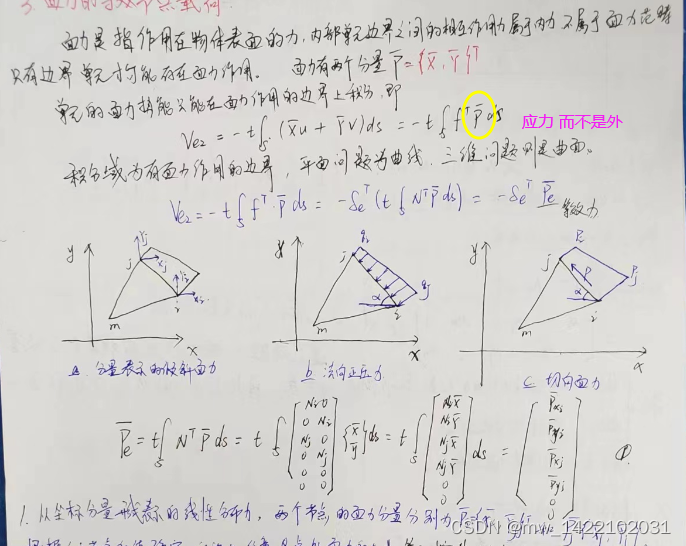 3. 面力的等效节点载荷
面力是指作用在物体表面的力, 内部单元边界之间的相互作用力属于内力 不属于面力范畴
只有边界单元才可能存在面力作用。 面力有两个分量 P̄={X̄, Ȳ}ᵀ
单元的面力势能只能在面力作用的边界上积分, 即
Ve₂ = -t∫ₛ (X̄u + Ȳv)ds = -t∫ₛ fᵀ P̄ ds
应力 而不是外
积分域为有面力作用的边界, 平面问题为曲线, 三维问题则是曲面。
Ve₂ = -t∫ₛ fᵀ·P̄ ds = -δeᵀ(t∫ₛ NᵀP̄ ds) = -δeᵀ P̄e 等效力
y j Yj Xj Yi Xi i m x
y qi j α qj i m x
y Pi j P Pj α i m x
a. 分量表示的倾斜面力 b 法向正压力 c 切向面力
P̄e = t∫ₛ NᵀP̄ ds = t∫ₛ [Ni 0 0 Ni Nj 0 0 Nj 0 0 0 0] {X̄ Ȳ} ds = t∫ₛ [NiX̄ NiȲ NjX̄ NjȲ 0 0] ds = [P̄xi P̄yi P̄xj P̄yj 0 0] ①
1. 从坐标分量形式表示的线性分布力, 两个节点的面力分量分别为
CSDN @mw_1422102031